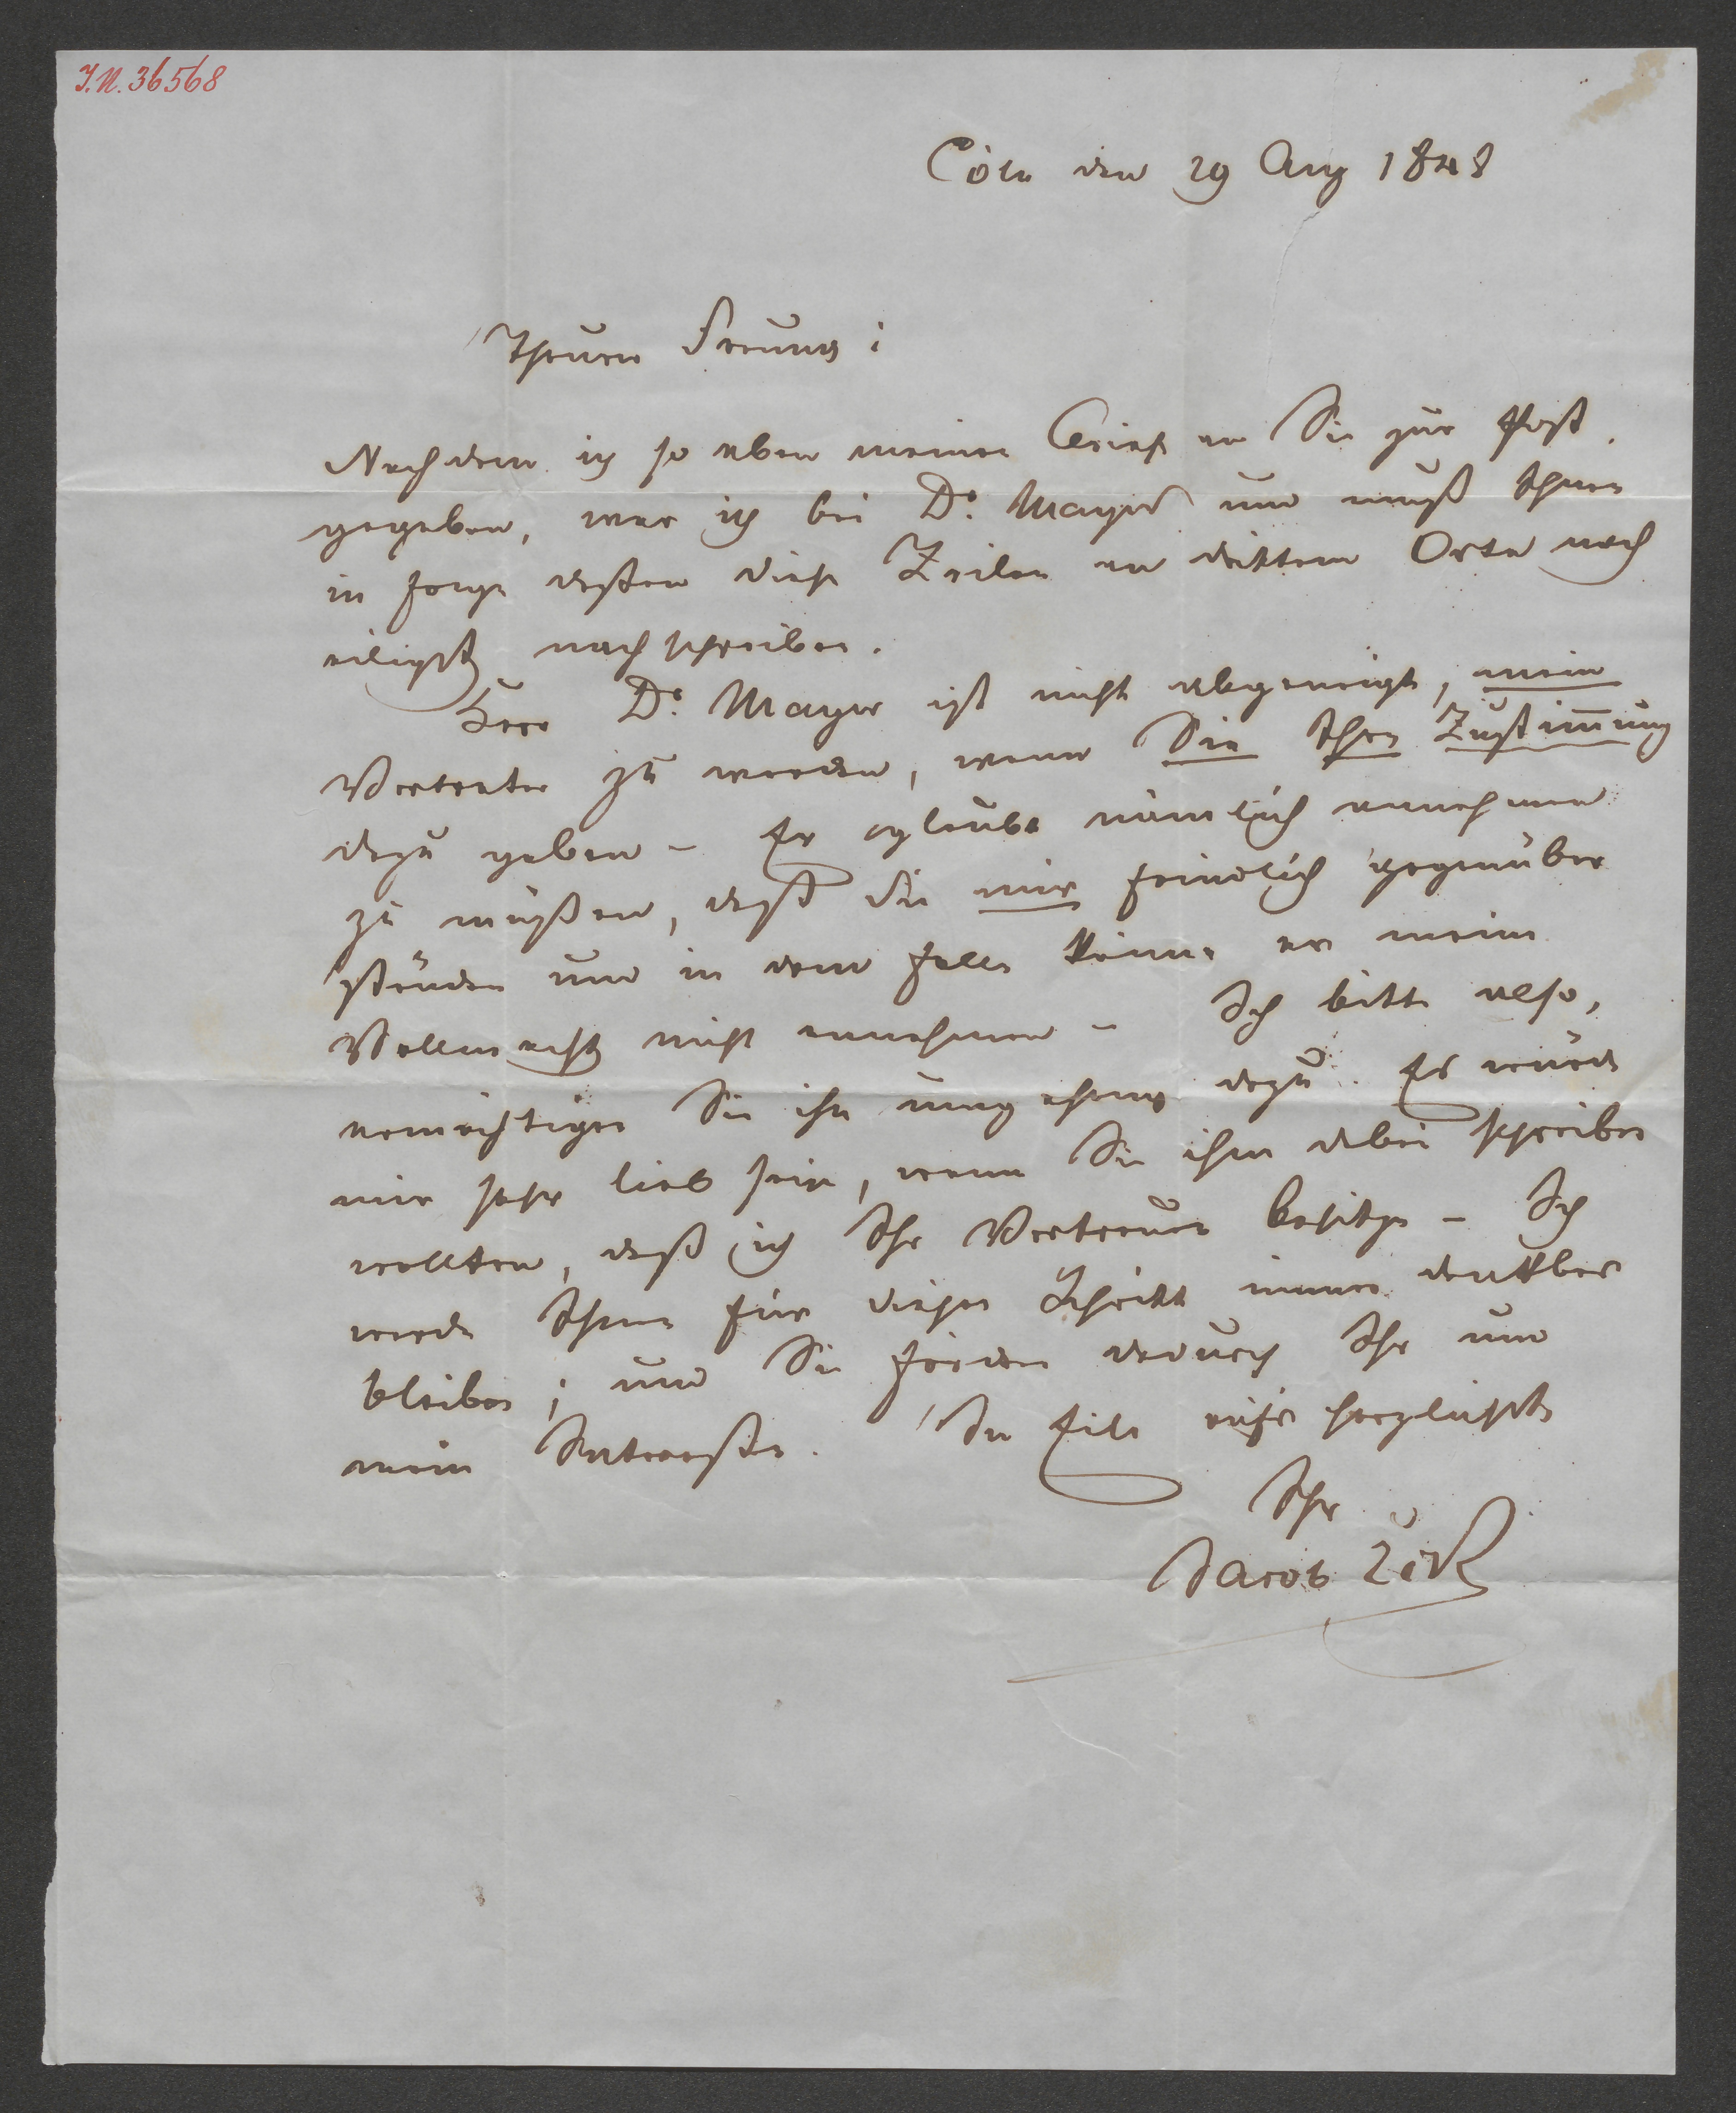 I.N. 36568
Cöln den 29 Aug 1848
Theurer Freund;
Nachdem ich so eben meinen Brief an Sie zur Post
gegeben, war ich bei Dr. Mayer und muß Ihnen
in Folge deßen diese Zeilen an drittem Orte noch
eiligst nachschreiben.
Herr Dr. Mayer ist nicht abgeneigt, mein
Vertreter zu werden, wenn Sie Ihre Zustimmung
dazu geben – Er glaubt nämlich annehmen
zu müßen, daß Sie mir feindlich gegenüber
ständen und in dem Falle könne er meine
Vollmacht nicht annehmen – Ich bitte also,
ermächtigen Sie ihn umgehend dazu. Es würde
mir sehr lieb sein, wenn Sie ihm dabei schreiben
wollten, daß ich Ihr Vertrauen besitze – Ich
werde Ihnen für diesen Schritt immer dankbar
bleiben; und Sie fördern dadurch Ihr und
mein Interesse. In Eile aufs herzlichste
Ihr
Jacob